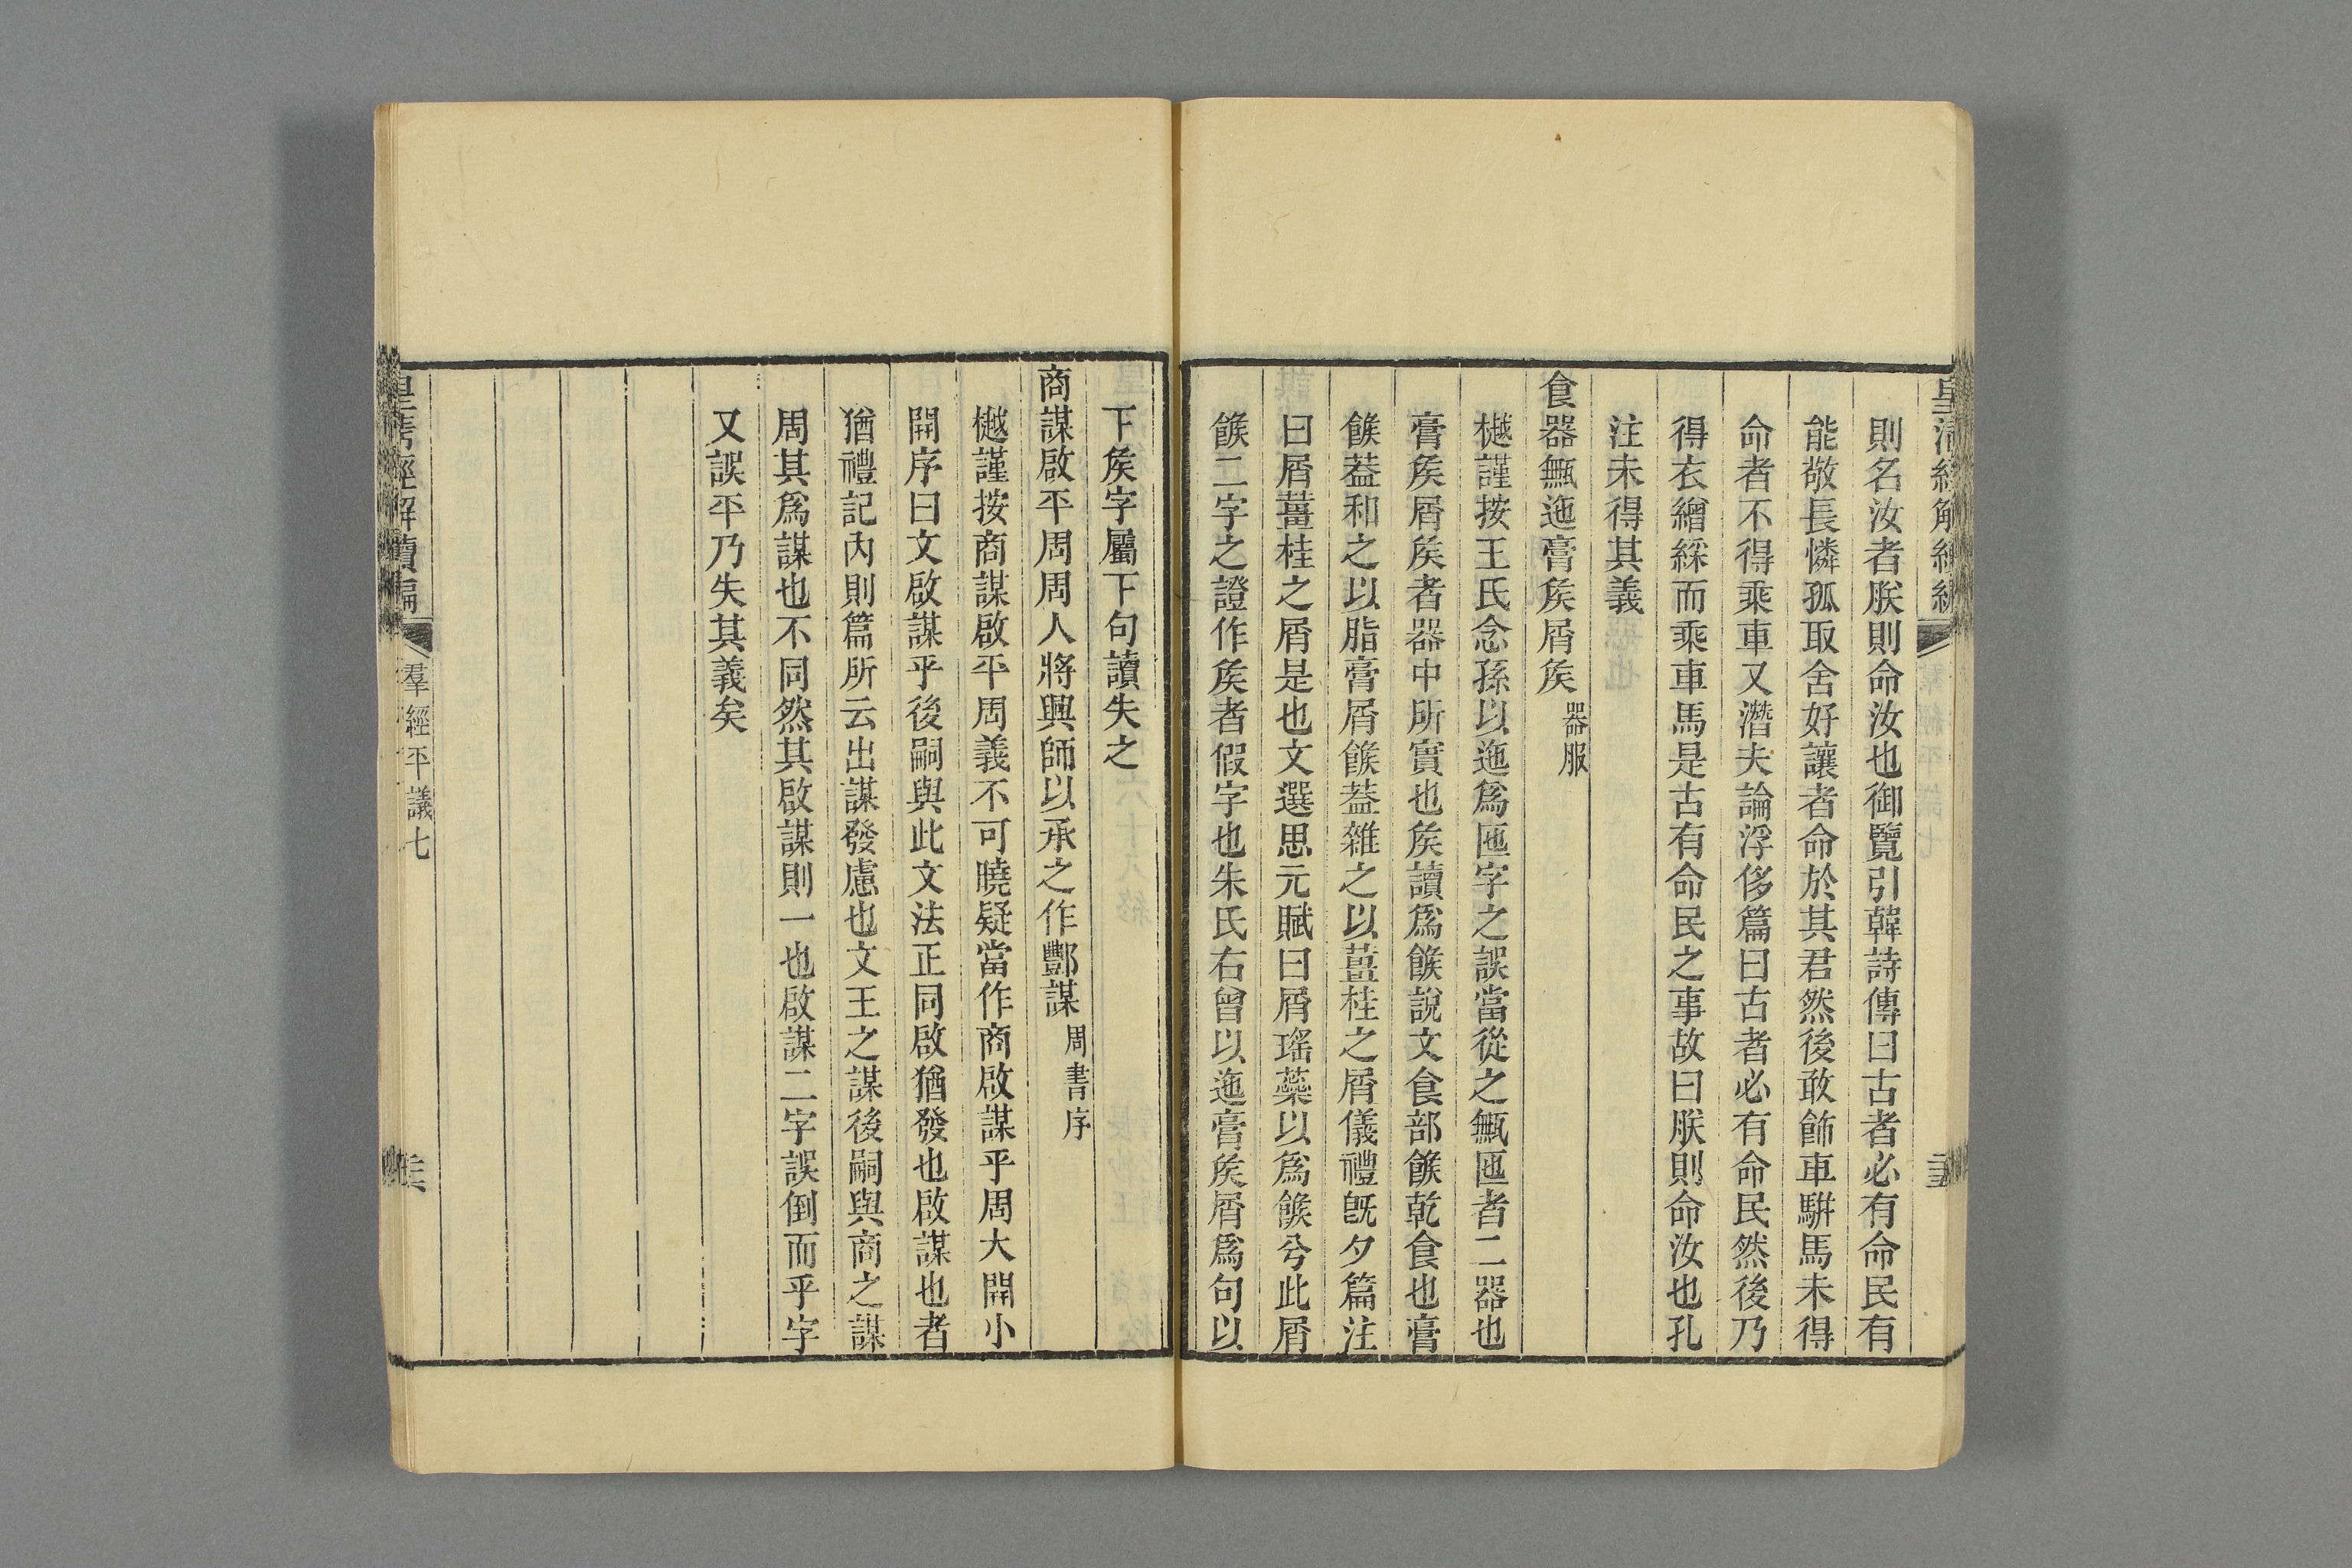 則名汝者朕則命汝也御覽引韓詩傳曰古者必有命民有
能敬長憐孤取舍好讓者命於其君然後敢飾車駢馬未得
命者不得乘車又潛夫論浮侈篇曰古者必有命民然後乃
得衣繒綵而乘車馬是古有命民之事故曰朕則命汝也孔
注未得其義
食器甒迤膏矦屑矦 器服
樾謹按王氏念孫以迤爲匜字之誤當從之甒匜者二器也
膏矦屑矦者器中所實也矦讀爲餱說文食部餱乾食也膏
餱葢和之以脂膏屑餱葢雜之以薑桂之屑儀禮旣夕篇注
曰屑薑桂之屑是也文選思元賦曰屑瑤蘂以爲餱兮此屑
餱二字之證作矦者假字也朱氏右曾以迤膏矦屑爲句以
下矦字屬下句讀失之
商謀啟平周周人將興師以承之作酆謀 周書序
樾謹按商謀啟平周義不可曉疑當作商啟謀乎周大開小
開序曰文啟謀乎後嗣與此文法正同啟猶發也啟謀也者
猶禮記內則篇所云出謀發慮也文王之謀後嗣與商之謀
周其爲謀也不同然其啟謀則一也啟謀二字誤倒而乎字
又誤平乃失其義矣
皇淸經解續編 羣經平議七